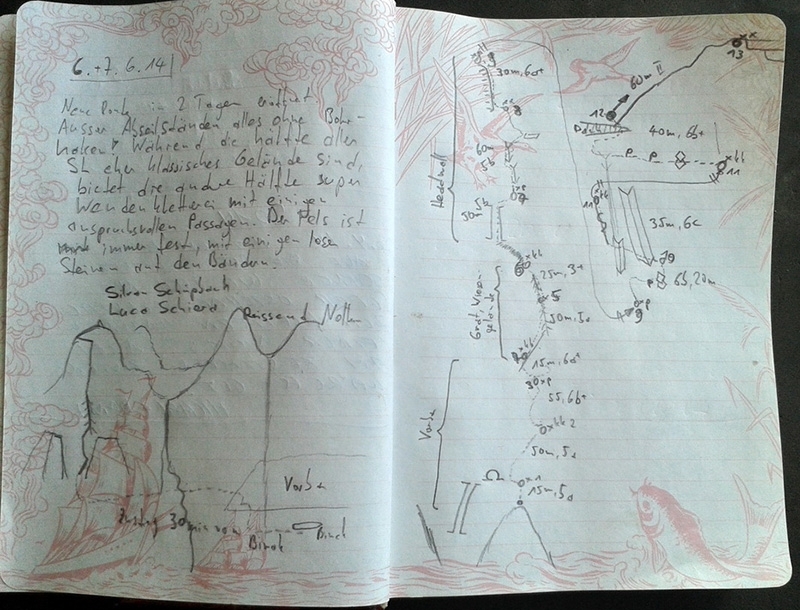 6.+7.6.14
Neue Route in 2 Tagen eröffnet
Ausser Abseilständen alles ohne Bohr-
haken! Während die hälfte aller
SL eher klassisches Gelände sind,
bietet die andre Hälfte super
Wendenkletterei mit einigen
anspruchsvollen Passagen. Der Fels ist
immer fest, mit einigen losen
Steinen auf den Bändern.
Silvan Schüpbach
Luca Schiera
Reissend Nollen
Vorbau
Zustieg 30min von
Biwak
Biwak
xx
13
60m II
12
40m, 6b+
P P
xkk
11
35m, 6c
10
6b, 20m
P
9
30m, 6a+
8
60m
5b
7
50m 5b
Headwall
6 xkk
25m, 3+
5
50m, 5a
Grat,
gelände
xkk
15m, 6a+
3 xP
55, 6b+
xkk 2
50m, 5a
Vorbau
x1
15m, 5a